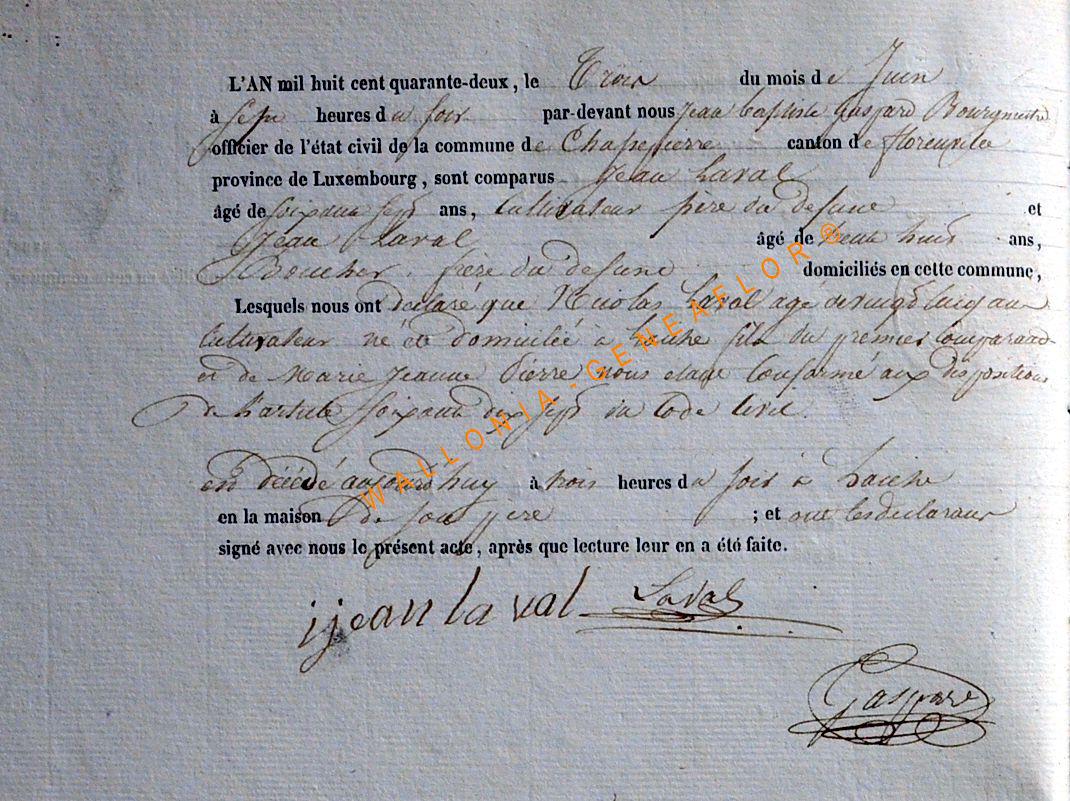 L'AN mil huit cent quarante-deux, le Trois du mois de Juin
à Sept heures du soir par-devant nous Jean Baptiste Gaspard Bourgmestre
officier de l'état civil de la commune de Chassepierre canton de florenville
province de Luxembourg, sont comparus Jean Laval
âgé de soixante sept ans, Cultivateur père du defunt et
Jean Laval âgé de trente huit ans,
Boucher frère du defunt domiciliés en cette commune,
Lesquels nous ont declaré que Nicolas Laval agé de vingt cinq ans
Cultivateur né et domicilié à Laiche fils du premier Comparand
et de Marie Jeanne Pierre nous etant Conformé aux dispositions
de l'article soixante dix sept du Code Civil.
est décédé aujourd'huy à trois heures du soir à Laiche
en la maison de son père ; et ont les declarans
signé avec nous le présent acte, après que lecture leur en a été faite.
jjean laval Laval
Gaspard
WALLONIA-GENEAFLOR ©